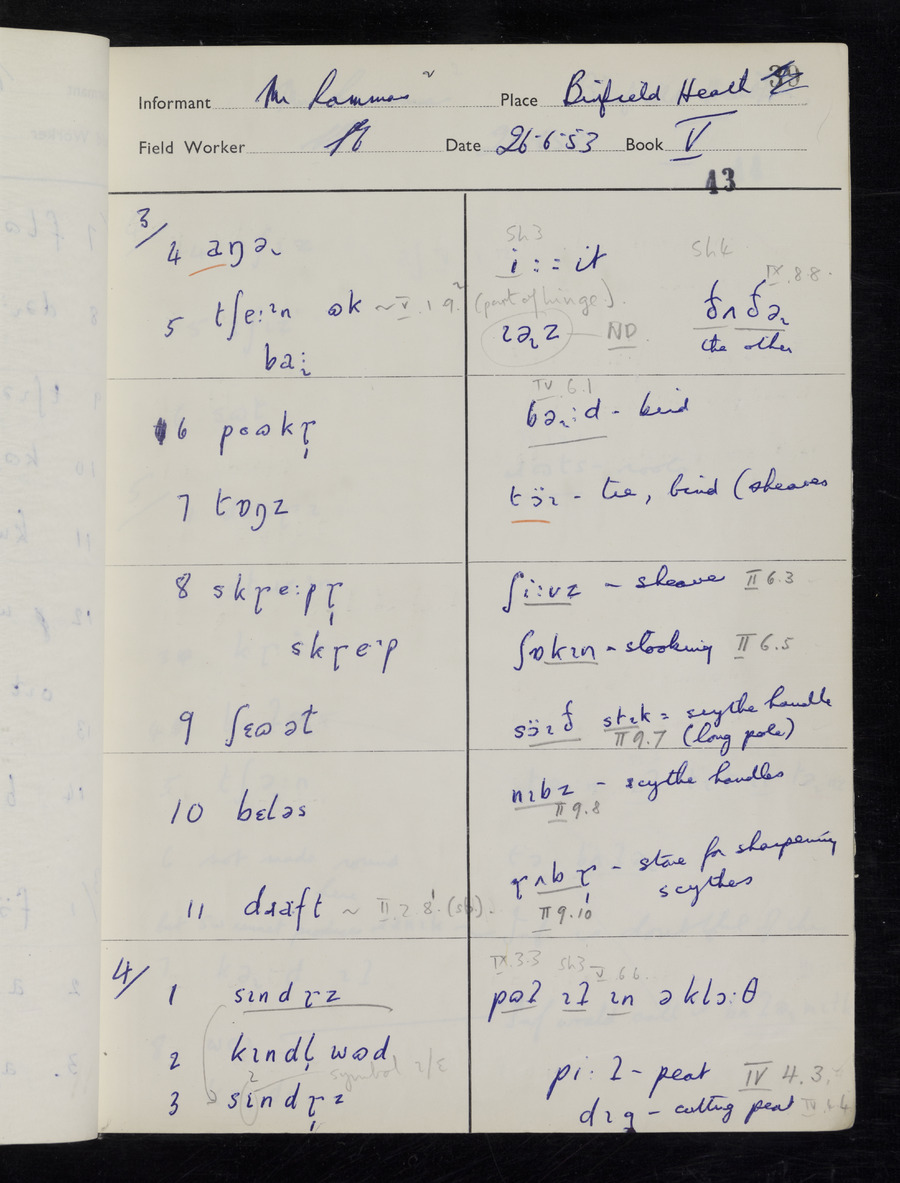 Informant Mr
Place Binfield Heath
Field Worker
Date 26·6·53
Book V
43
3/
4 aŋə˞
5 tʃeːɪn ɷk ~ V.1.9. (part of hinge).
baɪ
6 pɷkɽ̩
7 tɒŋz
8 skɽeːpɽ̩
skɽeɪp
9 ʃɛɷət
10 bɛləs
11 dɹaft ~ II.2 8.
4/
1 sɪndɽz
2 kɪndl̩ wɷd
symbol ɪ/ɛ
3 sɪndɽ̩z
Sh3
i : = it
Sh4
IX.8.8.
ND
ðʌðə˞
the other
IV 6.1
bəɪːd - bind
tɔ̈ɪ - tie, bind (sheaves
ʃiːvz - sheave II 6.3
ʃɒkɪn - stooking II 6.5
sɔ̈ɪð stɪk = scythe handle
II 9.7 (long pole)
nɪbz - scythe handles
II 9.8
ɽʌbɽ̩ - stone for sharpening
scythes
II 9.10
IX.3.3 Sh3 V 6 6.
pɷʔ ɪʔ ɪn ə klɔːθ
piːʔ - peat IV 4.3.
dɪg - cutting peat IV 4.4